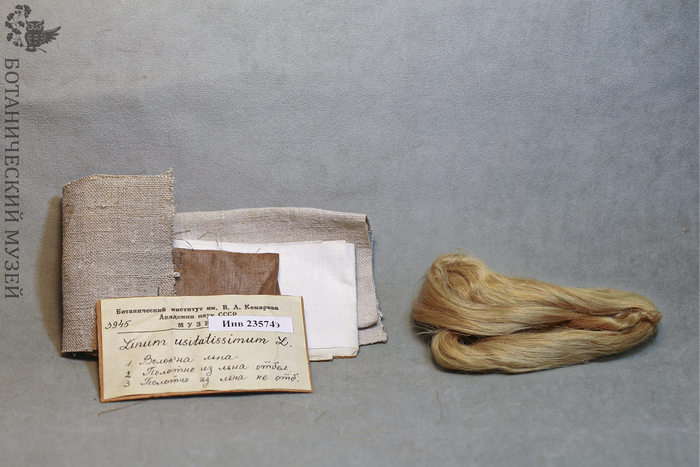 БОТАНИЧЕСКИЙ МУЗЕЙ
Ботанический институт им. В. Л. Комарова
Академии наук СССР
3945 МУЗ Инв 23574
Linum usitatissimum L.
1. Волокна льна
2 Полотно из льна отбел
3 Полотно из льна не отб.